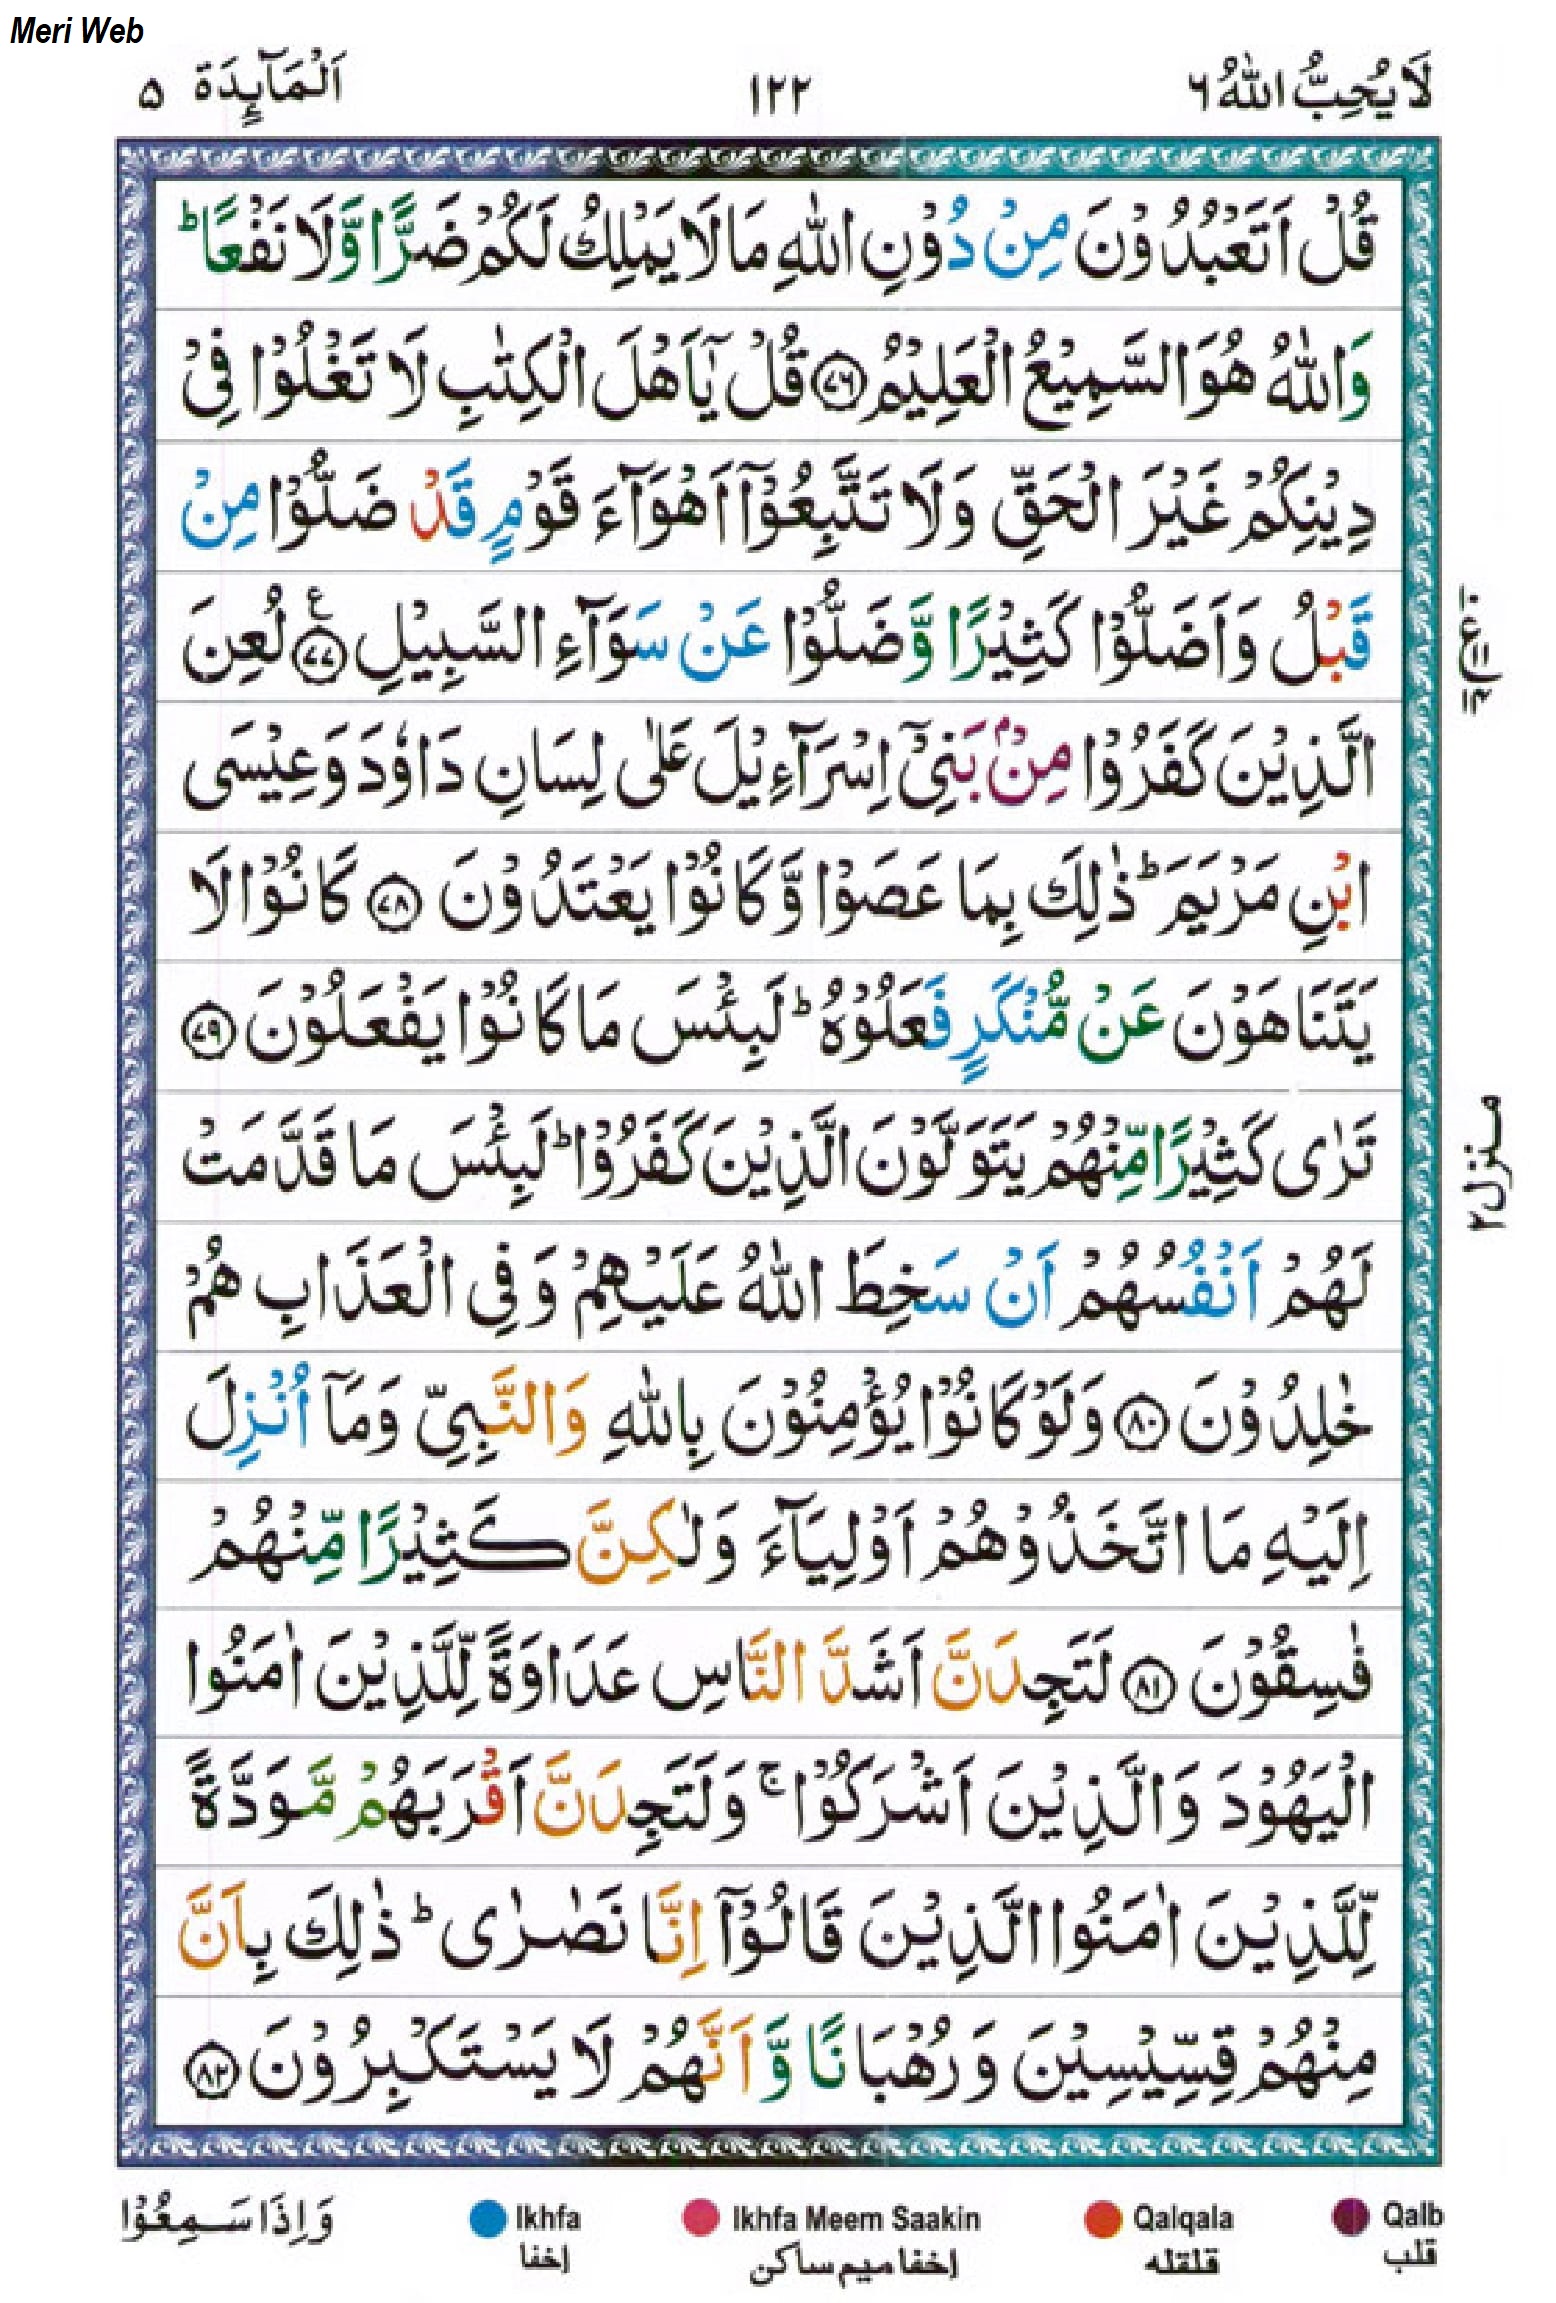 Meri Web
لَا يُحِبُّ اللّٰهُ ٦
١٢٢
اَلْمَآئِدَة ۵
قُلْ اَتَعْبُدُوْنَ مِنْ دُوْنِ اللّٰهِ مَا لَا يَمْلِكُ لَكُمْ ضَرًّا وَّلَا نَفْعًا ؕ
وَاللّٰهُ هُوَ السَّمِيْعُ الْعَلِيْمُ ﴿٧٦﴾ قُلْ يٰۤاَهْلَ الْكِتٰبِ لَا تَغْلُوْا فِيْ
دِيْنِكُمْ غَيْرَ الْحَقِّ وَلَا تَتَّبِعُوْۤا اَهْوَآءَ قَوْمٍ قَدْ ضَلُّوْا مِنْ
قَبْلُ وَاَضَلُّوْا كَثِيْرًا وَّضَلُّوْا عَنْ سَوَآءِ السَّبِيْلِ ﴿٧٧﴾ ع لُعِنَ
الَّذِيْنَ كَفَرُوْا مِنْۢ بَنِيْۤ اِسْرَآءِيْلَ عَلٰى لِسَانِ دَاوٗدَ وَعِيْسَى
ابْنِ مَرْيَمَ ؕ ذٰلِكَ بِمَا عَصَوْا وَّكَانُوْا يَعْتَدُوْنَ ﴿٧٨﴾ كَانُوْا لَا
يَتَنَاهَوْنَ عَنْ مُّنْكَرٍ فَعَلُوْهُ ؕ لَبِئْسَ مَا كَانُوْا يَفْعَلُوْنَ ﴿٧٩﴾
تَرٰى كَثِيْرًا مِّنْهُمْ يَتَوَلَّوْنَ الَّذِيْنَ كَفَرُوْا ؕ لَبِئْسَ مَا قَدَّمَتْ
لَهُمْ اَنْفُسُهُمْ اَنْ سَخِطَ اللّٰهُ عَلَيْهِمْ وَفِي الْعَذَابِ هُمْ
خٰلِدُوْنَ ﴿٨٠﴾ وَلَوْ كَانُوْا يُؤْمِنُوْنَ بِاللّٰهِ وَالنَّبِيِّ وَمَاۤ اُنْزِلَ
اِلَيْهِ مَا اتَّخَذُوْهُمْ اَوْلِيَآءَ وَلٰكِنَّ كَثِيْرًا مِّنْهُمْ
فٰسِقُوْنَ ﴿٨١﴾ لَتَجِدَنَّ اَشَدَّ النَّاسِ عَدَاوَةً لِّلَّذِيْنَ اٰمَنُوا
الْيَهُوْدَ وَالَّذِيْنَ اَشْرَكُوْا ۚ وَلَتَجِدَنَّ اَقْرَبَهُمْ مَّوَدَّةً
لِّلَّذِيْنَ اٰمَنُوا الَّذِيْنَ قَالُوْۤا اِنَّا نَصٰرٰى ؕ ذٰلِكَ بِاَنَّ
مِنْهُمْ قِسِّيْسِيْنَ وَرُهْبَانًا وَّاَنَّهُمْ لَا يَسْتَكْبِرُوْنَ ﴿٨٢﴾
منزل ٢
وَاِذَا سَمِعُوْا
Ikhfa
إخفا
Ikhfa Meem Saakin
إخفا ميم ساكن
Qalqala
قلقله
Qalb
قلب